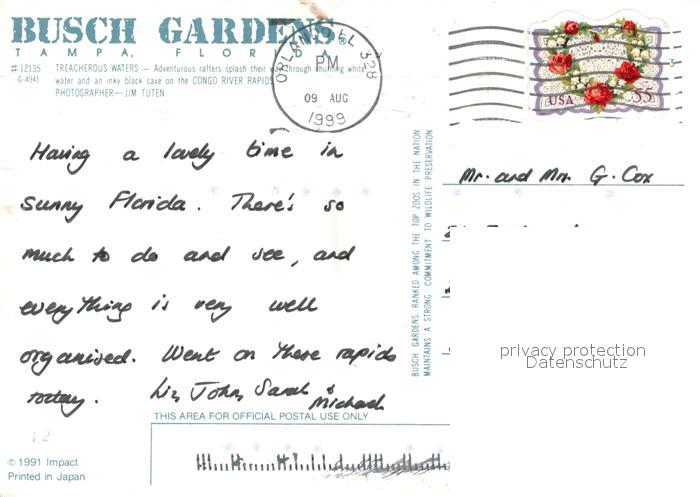 BUSCH GARDENS®
TAMPA, FLORIDA
# 12135 TREACHEROUS WATERS — Adventurous rafters splash their way through churning white
G-4941 water and an inky black cave on the CONGO RIVER RAPIDS
PHOTOGRAPHER—JIM TUTEN
ORLANDO FL 328
PM
09 AUG
1999
USA 55
Having a lovely time in
sunny Florida. There's so
much to do and see, and
everything is very well
organised. Went on these rapids
today. Liz, John, Sarah &
Michael
BUSCH GARDENS RANKED AMONG THE TOP ZOOS IN THE NATION
MAINTAINS A STRONG COMMITMENT TO WILDLIFE PRESERVATION
Mr. and Mrs. G. Cox
privacy protection
Datenschutz
THIS AREA FOR OFFICIAL POSTAL USE ONLY
© 1991 Impact
Printed in Japan